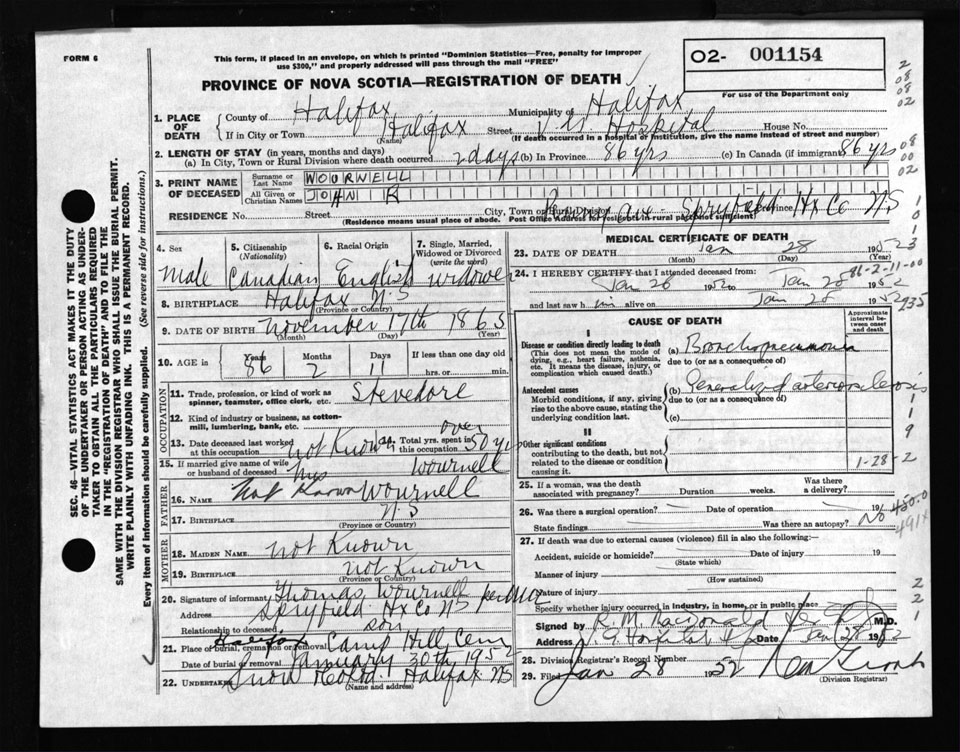 FORM 6
This form, if placed in an envelope, on which is printed "Dominion Statistics—Free, penalty for improper
use $300," and properly addressed will pass through the mail "FREE"
PROVINCE OF NOVA SCOTIA—REGISTRATION OF DEATH
O2- 001154
For use of the Department only
1. PLACE OF DEATH
County of Halifax Municipality of Halifax
If in City or Town Halifax Street V.G. Hospital House No.
(Name) (If death occurred in a hospital or institution, give the name instead of street and number)
2. LENGTH OF STAY (in years, months and days)
(a) In City, Town or Rural Division where death occurred 2 days (b) In Province 86 yrs (c) In Canada (if immigrant) 86 yrs
3. PRINT NAME OF DECEASED
Surname or Last Name WOURNELL
All Given or Christian Names JOHN R
RESIDENCE No. Street City, Town or Rural Division Spryfield Province Hx Co NS
(Residence means usual place of abode. Post Office Address for residents in rural parts not sufficient)
4. Sex Male
5. Citizenship (Nationality) Canadian
6. Racial Origin English
7. Single, Married, Widowed or Divorced (write the word) Widower
8. BIRTHPLACE Halifax N.S
(Province or Country)
9. DATE OF BIRTH November 17th 1865
(Month) (Day) (Year)
10. AGE in Years 86 Months 2 Days 11 If less than one day old hrs. or min.
OCCUPATION
11. Trade, profession, or kind of work as spinner, teamster, office clerk, etc. Stevedore
12. Kind of industry or business, as cotton-mill, lumbering, bank, etc.
13. Date deceased last worked at this occupation not Known
14. Total yrs. spent in this occupation over 50 yrs
15. If married give name of wife or husband of deceased Mrs Wournell
FATHER
16. NAME Not Known Wournell
17. BIRTHPLACE N.S
(Province or Country)
MOTHER
18. MAIDEN NAME not Known
19. BIRTHPLACE not Known
(Province or Country)
20. Signature of informant Thomas Wournell per
Address Spryfield Hx Co NS
Relationship to deceased son
21. Place of burial, cremation or removal Halifax Camp Hill Cem
Date of burial or removal January 30th 1952
22. Undertaker Snow Halifax NS
(Name and address)
MEDICAL CERTIFICATE OF DEATH
23. DATE OF DEATH Jan 28 1952
(Month) (Day)
24. I HEREBY CERTIFY that I attended deceased from:
Jan 26 1952 to Jan 28 1952
and last saw him alive on Jan 28 1952
86-2-11-00
935
CAUSE OF DEATH
Approximate interval between onset and death
I
Disease or condition directly leading to death
(This does not mean the mode of dying, e.g., heart failure, asthenia, etc. It means the disease, injury, or complication which caused death.)
(a) Bronchopneumonia
due to (or as a consequence of)
Antecedent causes
Morbid conditions, if any, giving rise to the above cause, stating the underlying condition last.
(b) Generalized arteriosclerosis
due to (or as a consequence of)
(c)
II
Other significant conditions contributing to the death, but not related to the disease or condition causing it.
1-28-2
25. If a woman, was the death associated with pregnancy? Duration weeks. Was there a delivery?
26. Was there a surgical operation? Date of operation 19
State findings Was there an autopsy? No
450.0
491X
27. If death was due to external causes (violence) fill in also the following:
Accident, suicide or homicide? Date of injury 19
(State which)
Manner of injury
(How sustained)
Nature of injury
Specify whether injury occurred in industry, in home, or in public place
Signed by R. M. MacDonald M.D.
Address V. G. Hospital Date Jan 28 1952
28. Division Registrar's Record Number
29. Filed Jan 28 1952
(Division Registrar)
SEC. 46—VITAL STATISTICS ACT MAKES IT THE DUTY
OF THE UNDERTAKER OR PERSON ACTING AS UNDER-
TAKER TO OBTAIN ALL THE PARTICULARS REQUIRED
IN THE "REGISTRATION OF DEATH" AND TO FILE THE
SAME WITH THE DIVISION REGISTRAR WHO SHALL ISSUE THE BURIAL PERMIT.
WRITE PLAINLY WITH UNFADING INK. THIS IS A PERMANENT RECORD.
Every item of information should be carefully supplied. (See reverse side for instructions.)